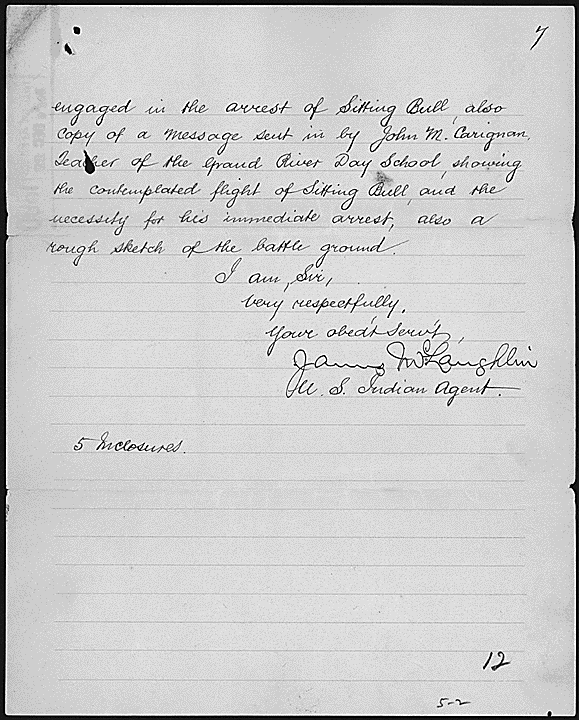 7
engaged in the arrest of Sitting Bull, also
copy of a message sent in by John M. Carignan
Teacher of the Grand River Day School, showing
the contemplated flight of Sitting Bull, and the
necessity for his immediate arrest, also a
rough sketch of the battle ground.
I am, Sir,
Very respectfully,
Your obed't serv't,
James McLaughlin
U. S. Indian Agent.
5 Inclosures.
12
5-2